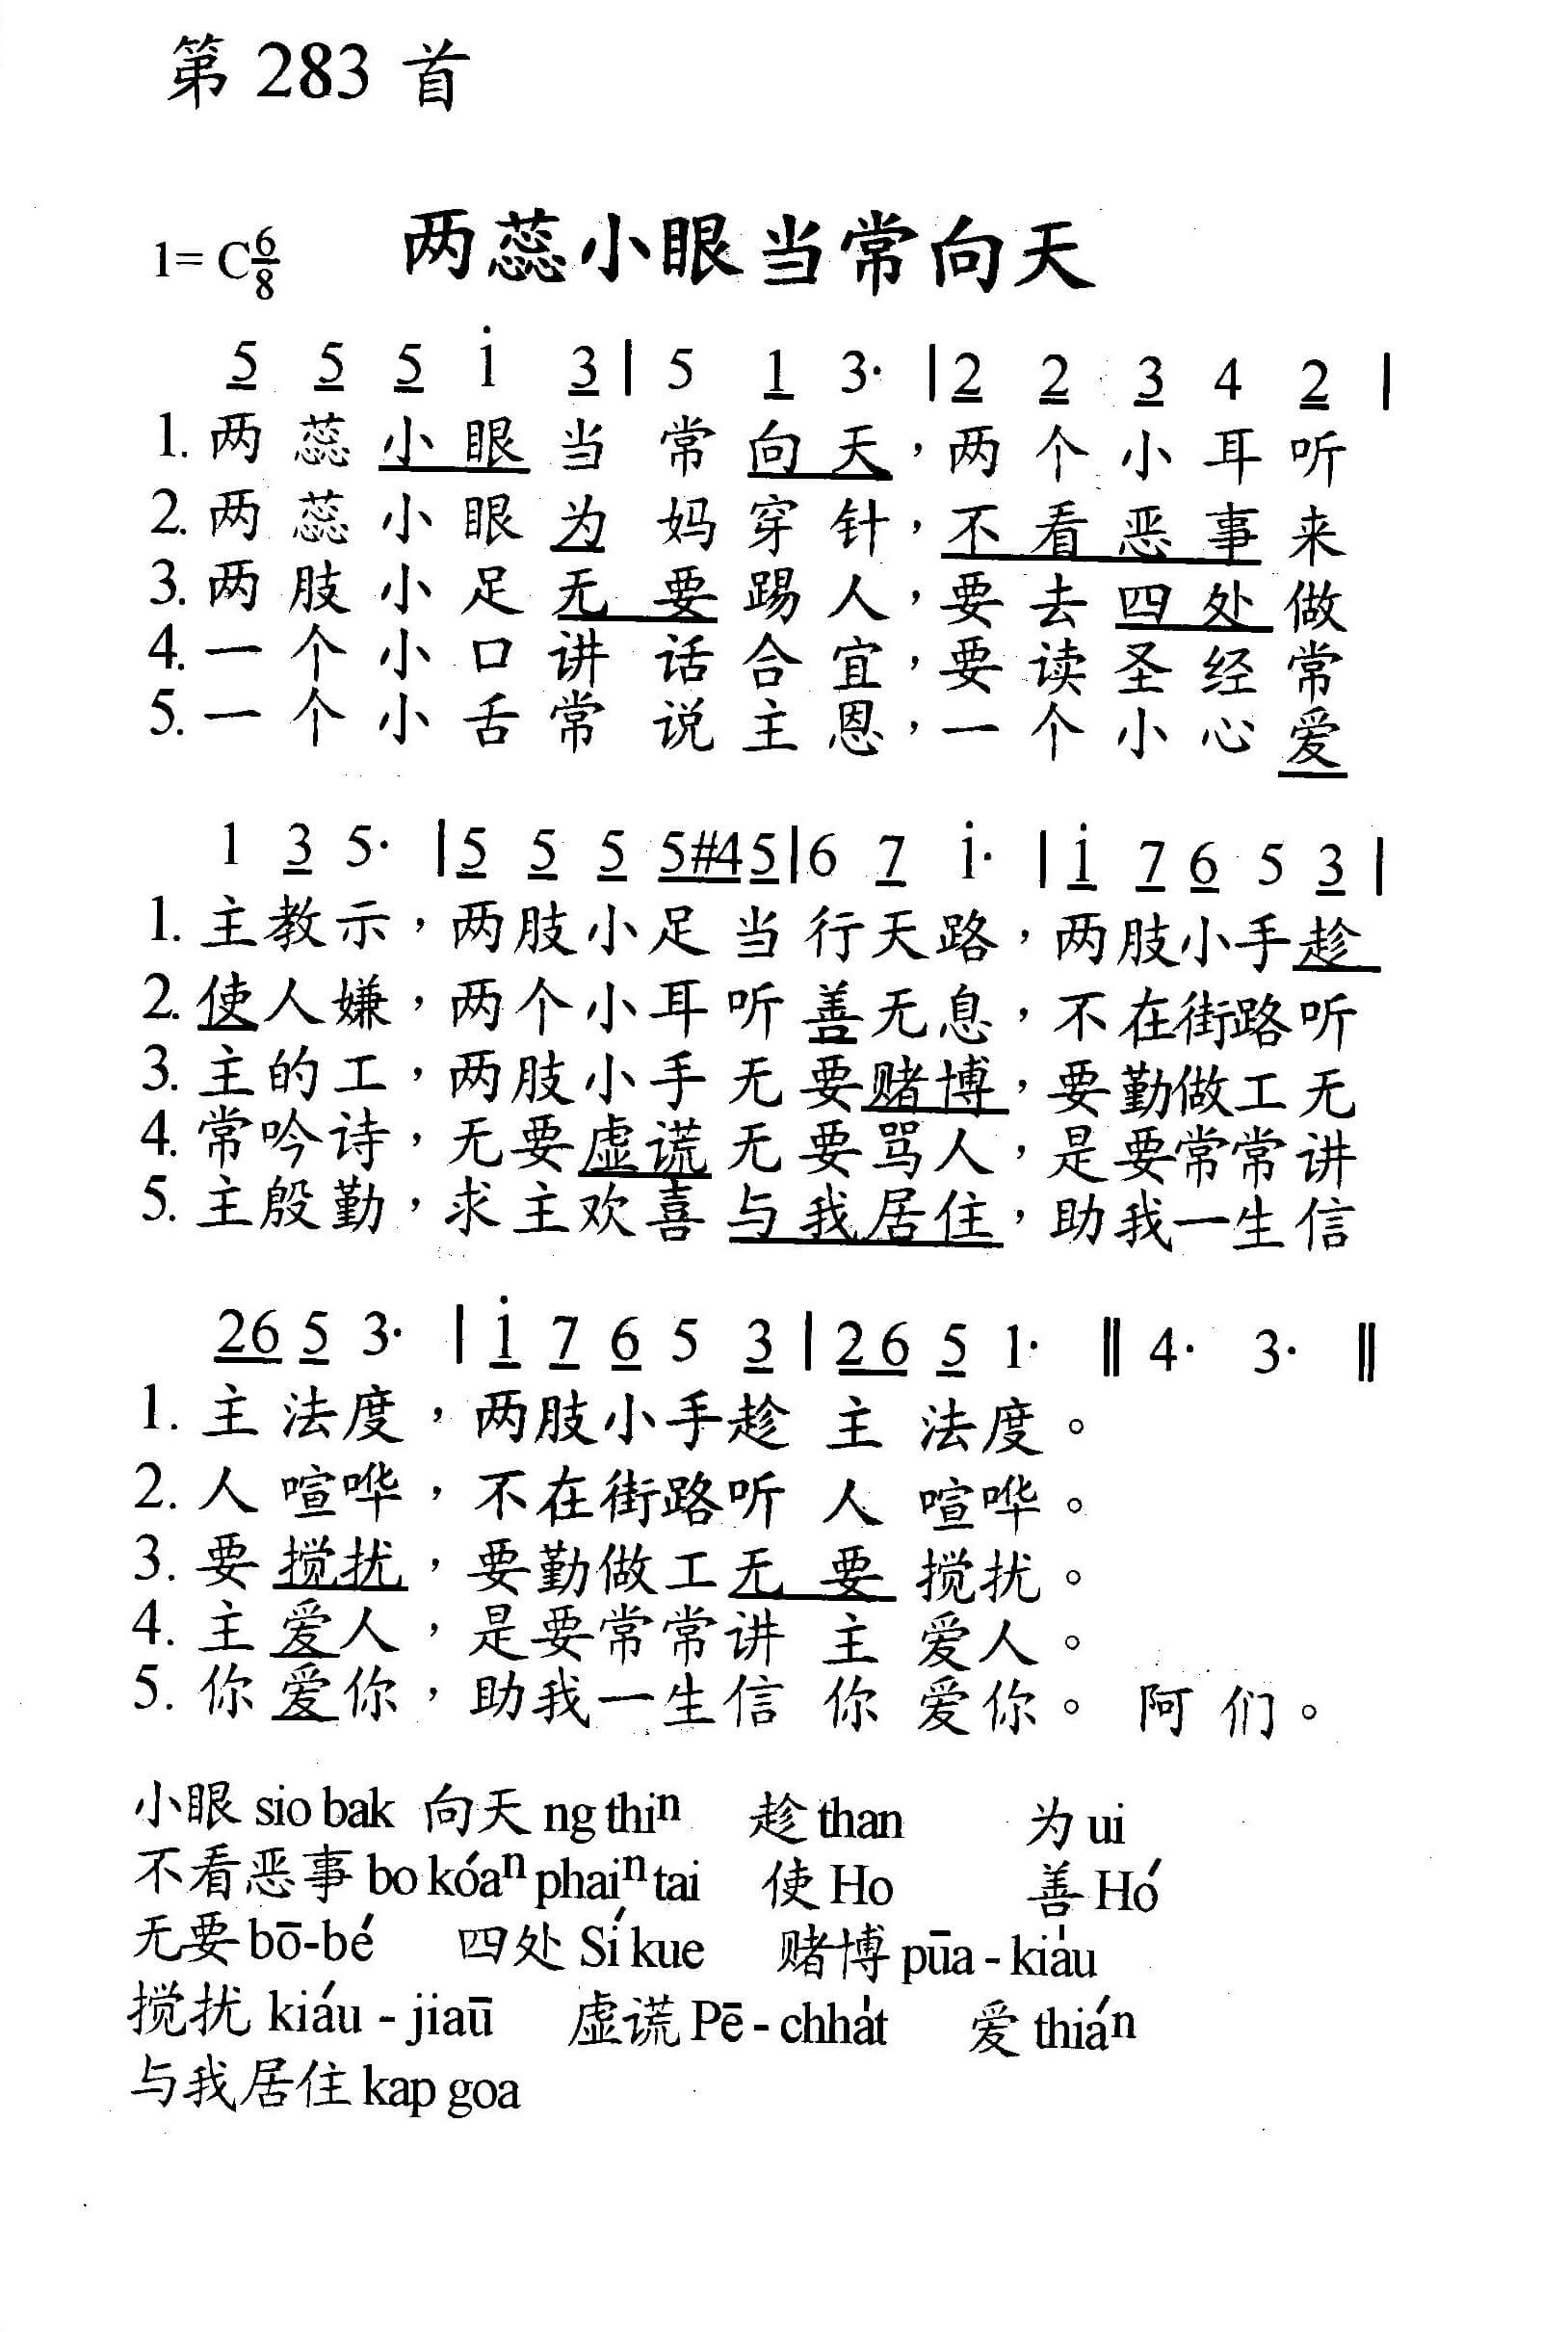 第 283 首
1= C 6/8 两蕊小眼当常向天
5 5 5 i 3 | 5 1 3· | 2 2 3 4 2 |
1. 两蕊小眼当常向天，两个小耳听
2. 两蕊小眼为妈穿针，不看恶事来
3. 两肢小足无要踢人，要去四处做
4. 一个小口讲话合宜，要读圣经常
5. 一个小舌常说主恩，一个小心爱
1 3 5· | 5 5 5 5#45 | 6 7 i· | i 7 6 5 3 |
1. 主教示，两肢小足当行天路，两肢小手趁
2. 使人嫌，两个小耳听善无息，不在街路听
3. 主的工，两肢小手无要赌博，要勤做工无
4. 常吟诗，无要虚谎无要骂人，是要常常讲
5. 主殷勤，求主欢喜与我居住，助我一生信
26 5 3· | i 7 6 5 3 | 26 5 1· ‖ 4· 3· ‖
1. 主法度，两肢小手趁主法度。
2. 人喧哗，不在街路听人喧哗。
3. 要搅扰，要勤做工无要搅扰。
4. 主爱人，是要常常讲主爱人。
5. 你爱你，助我一生信你爱你。阿们。
小眼 sio bak 向天 ng thiⁿ 趁 than 为 ui
不看恶事 bo kóaⁿ phaiⁿ tai 使 Ho 善 Hó
无要 bō-bé 四处 Sí kue 赌博 pūa - kia̍u
搅扰 kiáu - jiaū 虚谎 Pē - chha̍t 爱 thiáⁿ
与我居住 kap goa